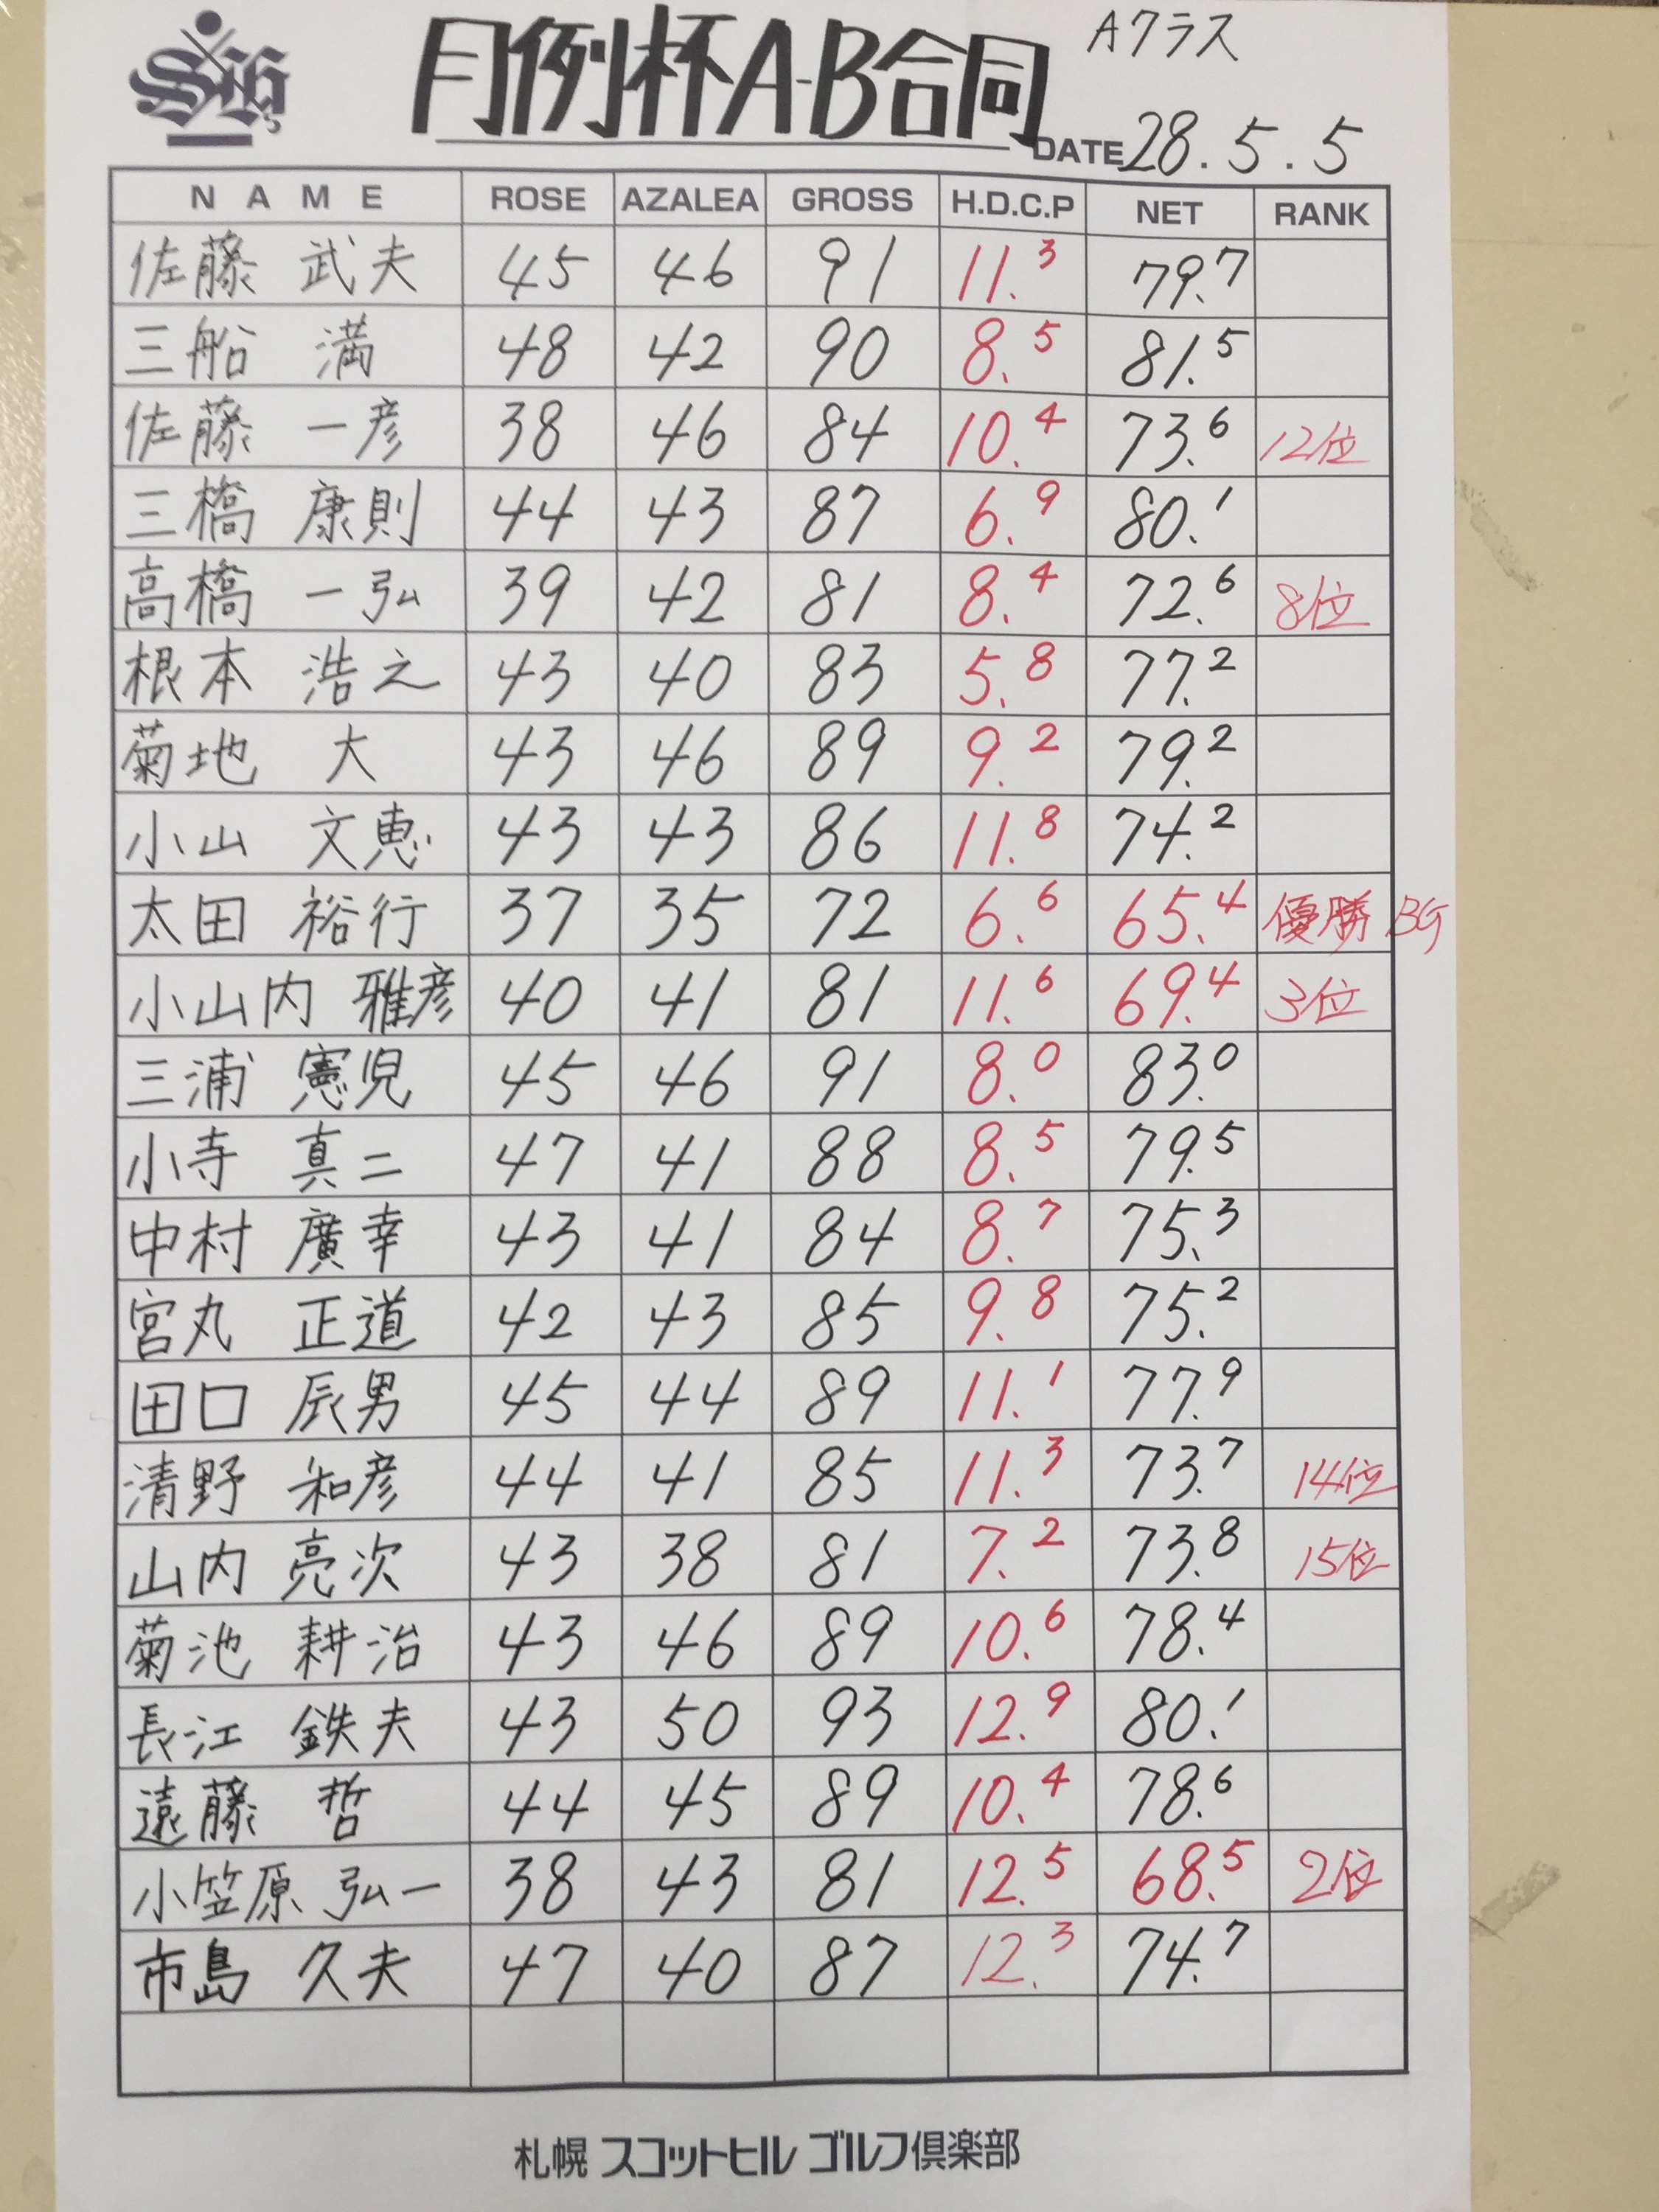 月例杯A-B合同
Aクラス
DATE 28.5.5
NAME ROSE AZALEA GROSS H.D.C.P NET RANK
佐藤 武夫 45 46 91 11.3 79.7
三船 満 48 42 90 8.5 81.5
佐藤 一彦 38 46 84 10.4 73.6 12位
三橋 康則 44 43 87 6.9 80.1
高橋 一弘 39 42 81 8.4 72.6 8位
根本 浩之 43 40 83 5.8 77.2
菊地 大 43 46 89 9.2 79.2
小山 文恵 43 43 86 11.8 74.2
太田 裕行 37 35 72 6.6 65.4 優勝 BG
小山内 雅彦 40 41 81 11.6 69.4 3位
三浦 憲児 45 46 91 8.0 83.0
小寺 真二 47 41 88 8.5 79.5
中村 廣幸 43 41 84 8.7 75.3
宮丸 正道 42 43 85 9.8 75.2
田口 辰男 45 44 89 11.1 77.9
清野 和彦 44 41 85 11.3 73.7 14位
山内 亮次 43 38 81 7.2 73.8 15位
菊池 耕治 43 46 89 10.6 78.4
長江 鉄夫 43 50 93 12.9 80.1
遠藤 哲 44 45 89 10.4 78.6
小笠原 弘一 38 43 81 12.5 68.5 2位
市島 久夫 47 40 87 12.3 74.7
札幌 スコットヒル ゴルフ倶楽部